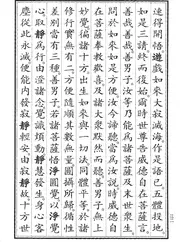 速得開悟遊戲如來大寂滅海作是語已五體投地
如是三請終而復始爾時世尊告威德自在菩薩言
善哉善哉善男子汝等乃能為諸菩薩及末世眾生
問於如來如是方便汝今諦聽當為汝說時威德自
在菩薩奉教歡喜及諸大眾默然而聽善男子無上
妙覺遍諸十方出生如來與一切法同體平等於諸
修行實無有二方便隨順其數無量圓攝所歸循性
差別當有三種善男子若諸菩薩悟淨圓覺以淨覺
心取靜為行由澄諸念覺識煩動靜慧發生身心客
塵從此永滅便能內發寂靜輕安由寂靜故十方世